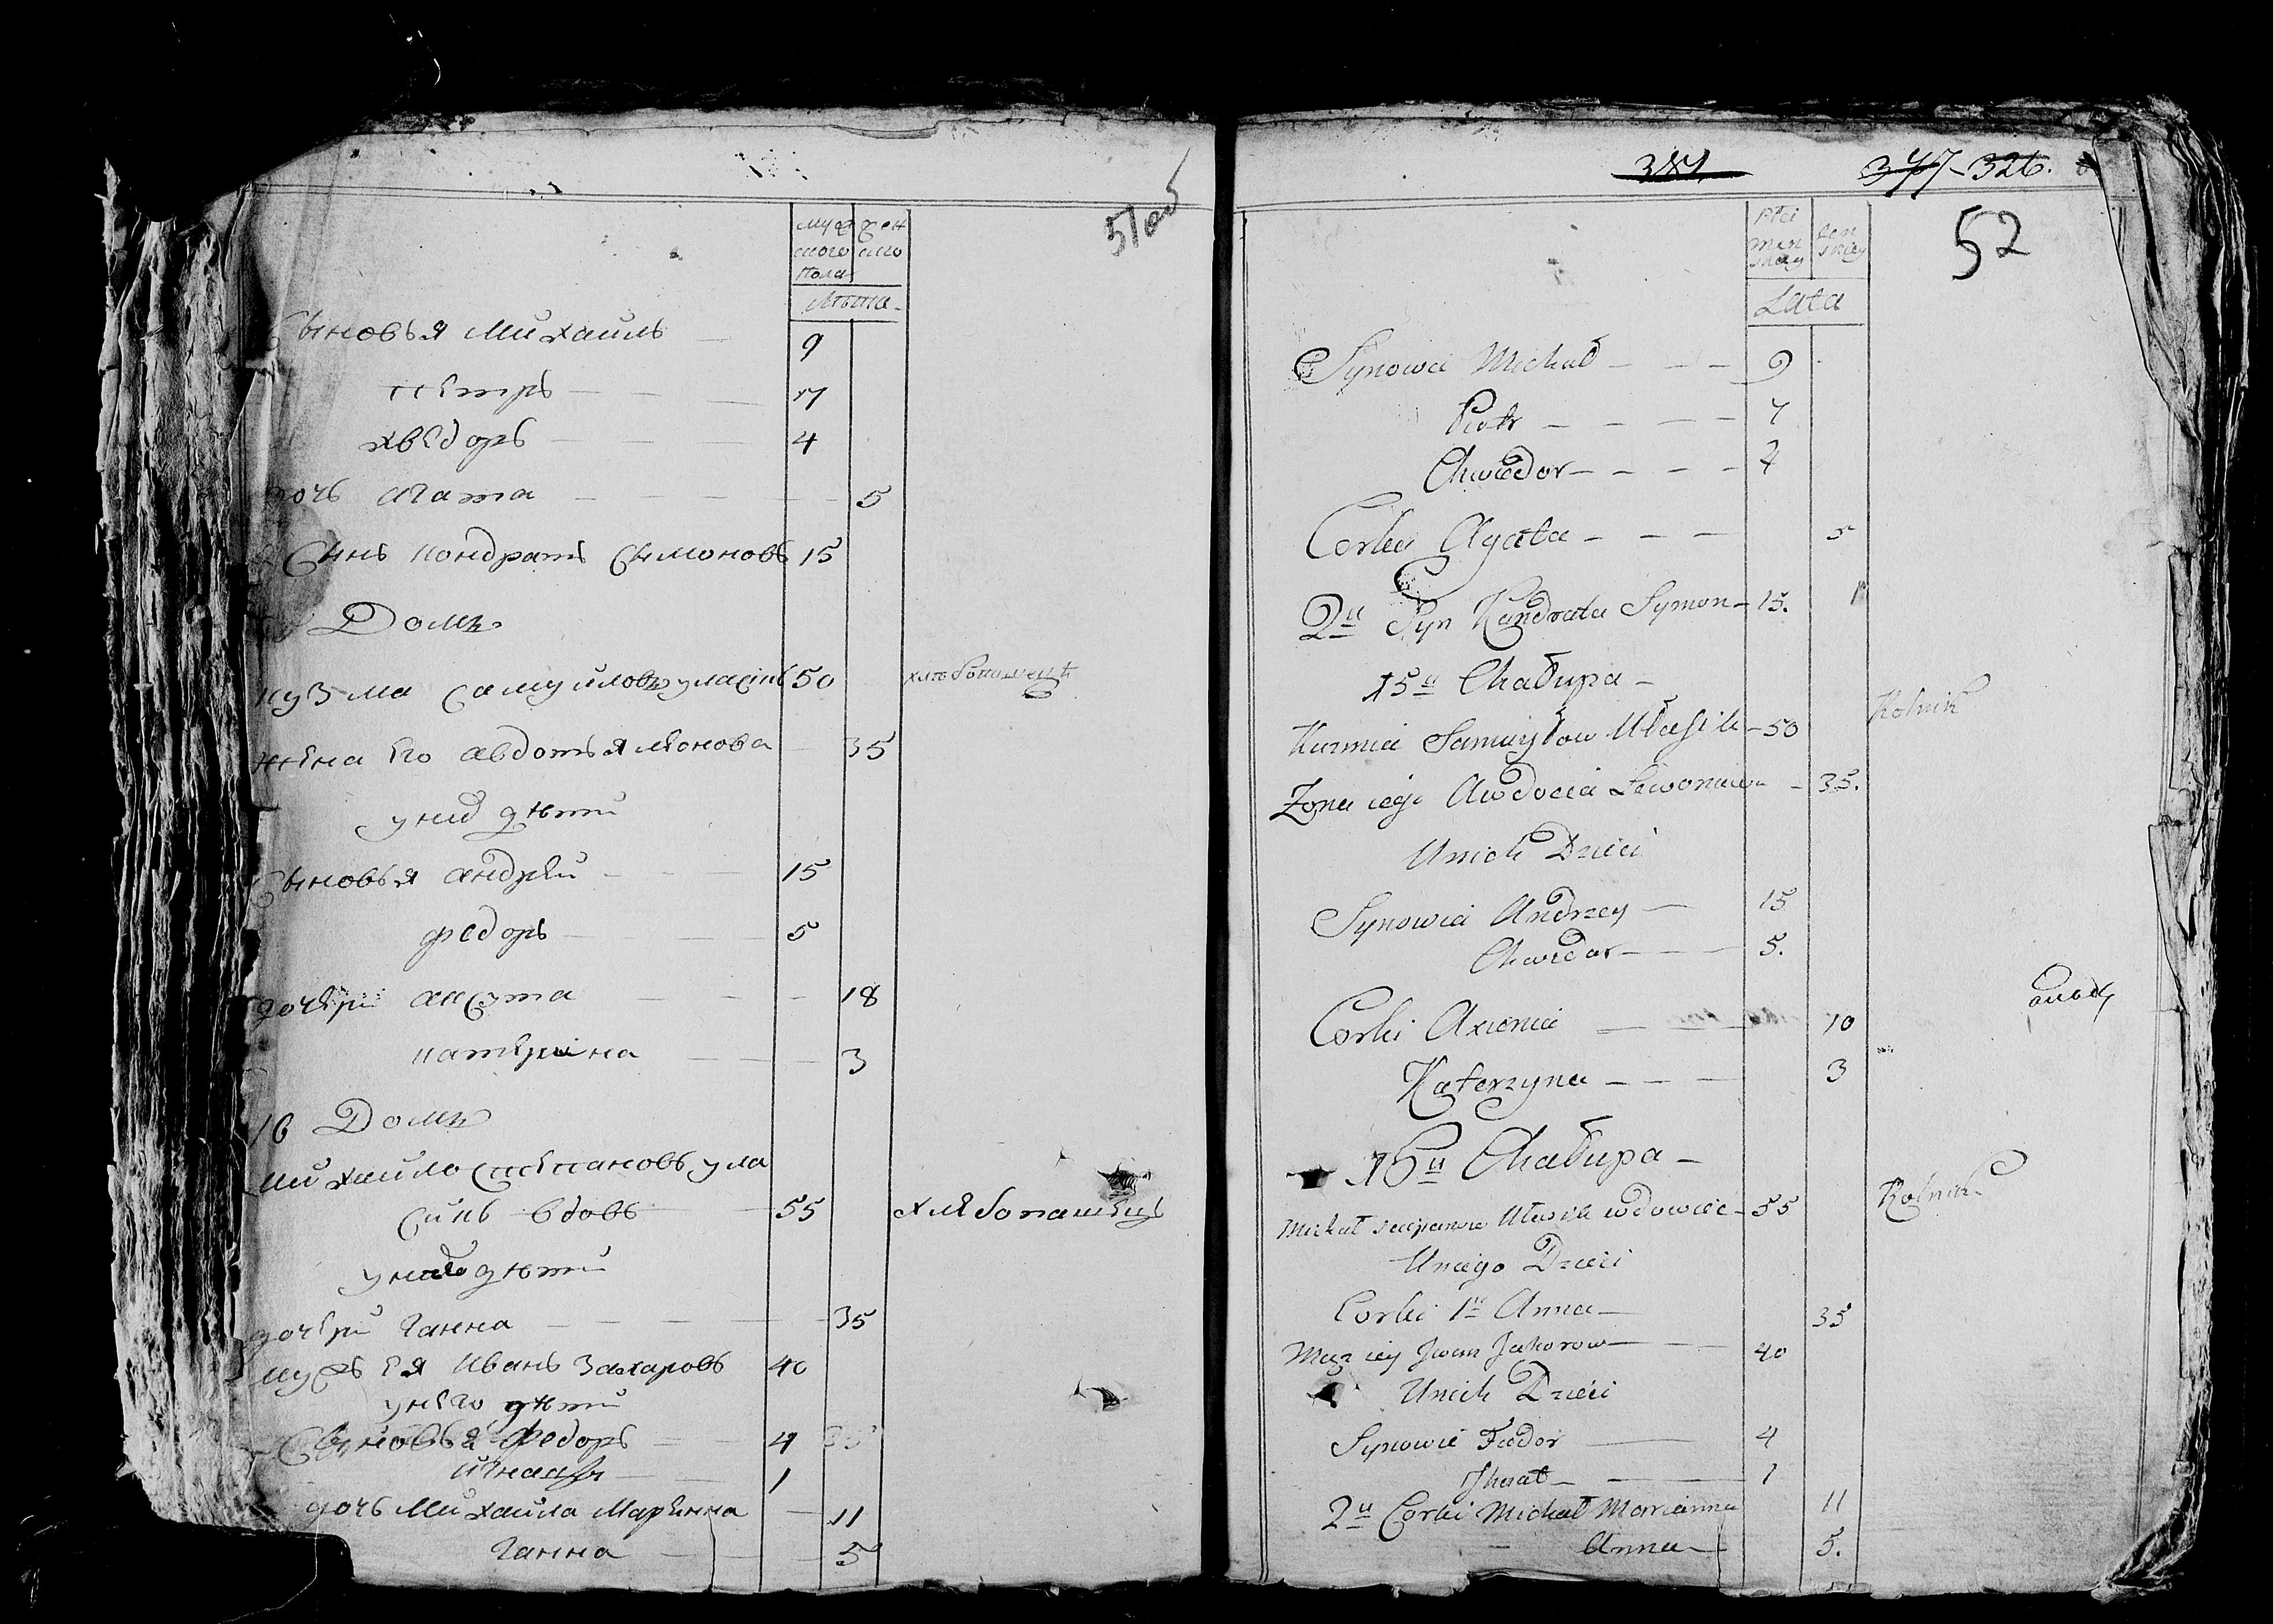 51об
муж жен
ского ского
пола
Лѣта
Сыновья Михаилъ 9
Петръ 7
Хведоръ 4
дочь Агата 5
Сынъ Кондратъ Сымоновъ 15
Домъ
Кузма Самуйловъ Уласікъ 50 хлѣбопашецъ
жена его Авдотья Лѣонова 35
у них дѣти
Сыновья Андрей 15
Федоръ 5
дочери Аксюта 18
Катерина 3
16 Домъ
Михайло Степановъ Ула
сикъ вдовъ 55 хлѣбопашецъ
у него дѣти
дочери Ганна 35
мужъ ея Иванъ Захаровъ 40
у него дѣти
Сыновья Федоръ 4
Игнатъ 1
дочь Михайла Марянна 11
Ганна 5
381
377-326.
52
Płci
męz żen
skiey skiey
Lata
Synowie Michał 9
Piotr 7
Chwedor 4
Corka Agata 5
2u Syn Kandrata Symon 15.
15u Chałupa
Kuzma Samuyłow Ułasik 50 Rolnik
Zona iego Awdocia Lewonowa 35.
U nich Dzieci
Synowie Andrzey 15
Chwedor 5.
Corki Axienia 10
Katerzyna 3
16u Chałupa
Michał Sciepanow Ułasik wdowiec 55 Rolnik
U niego Dzieci
Corki 1a Anna 35
Mąz iey Jwan Zacharow 40
U nich Dzieci
Synowie Fiodor 4
Jhnat 1
2u Corki Michał Marianna 11
Anna 5.